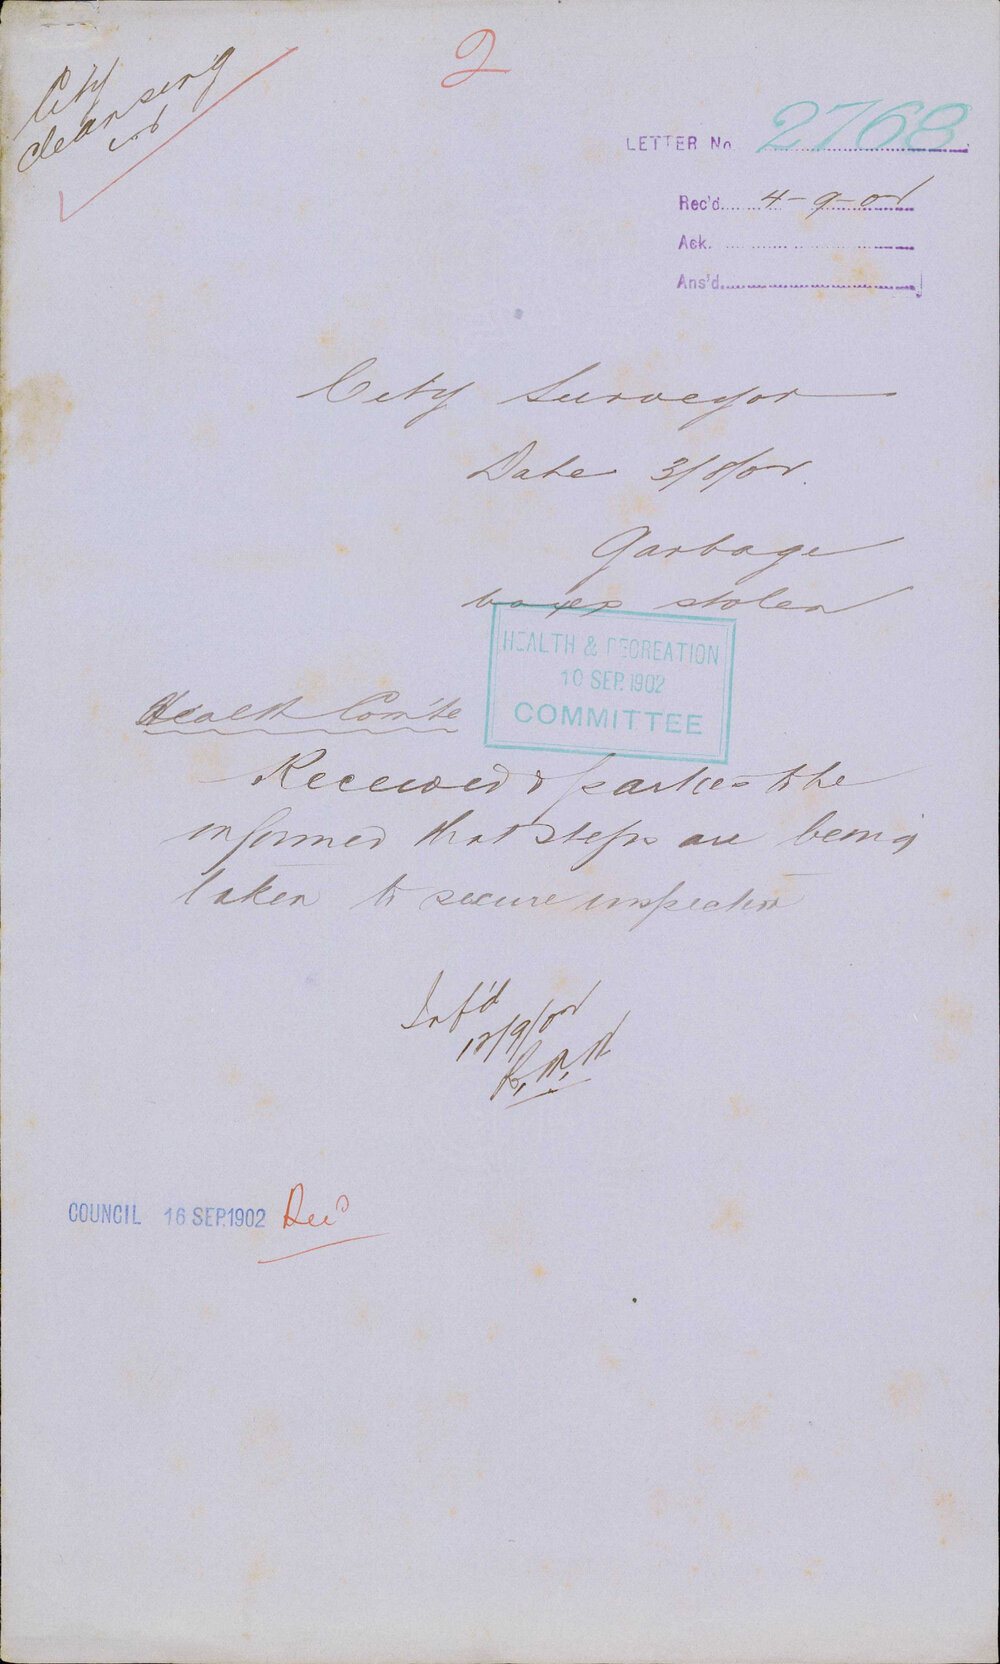 2
City
cleansing
LETTER No. 2768
Rec'd 4-9-02
Ack.
Ans'd
City Surveyor
Date 3/9/02.
Garbage
boxes stolen
HEALTH & RECREATION
10 SEP. 1902
COMMITTEE
Health Com'te
Received & parties to be
informed that steps are being
taken to secure inspection
Inf'd
12/9/02
COUNCIL 16 SEP. 1902 Rec'd